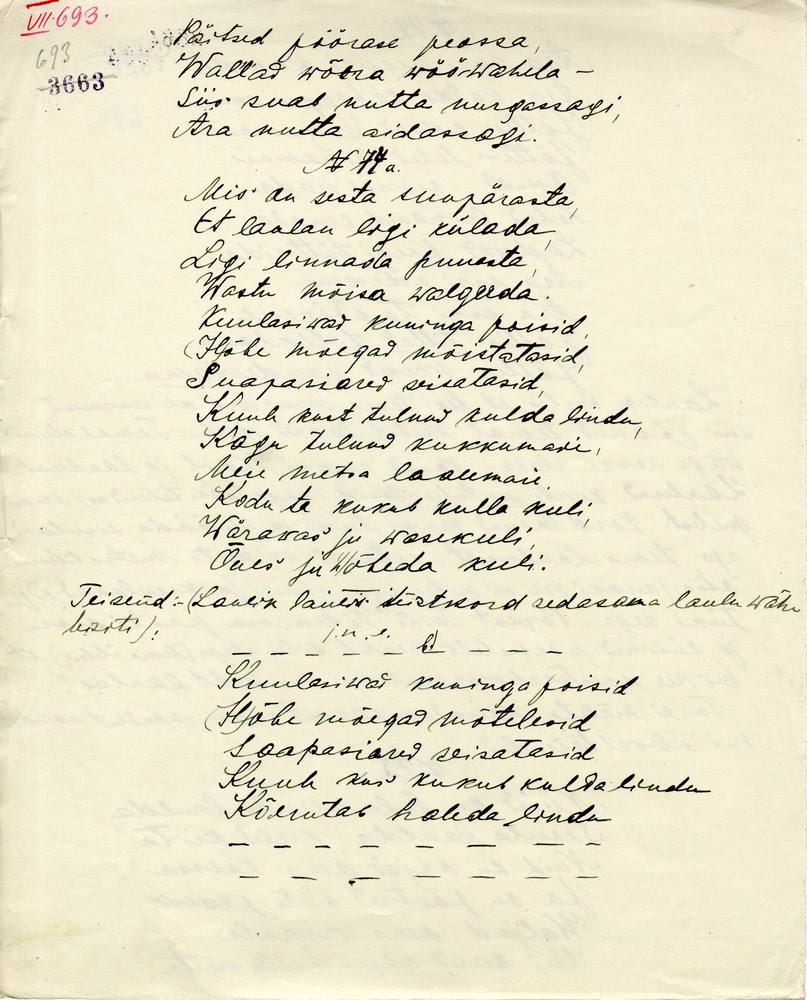 VII.693.
693
3663
Päitsed pöörase peossa,
Wallad wõera wöö wahela –
Siis saab nutta nurgassagi,
Ära nutta aidassagi.
№ 74 a.
Mis on sesta suupärasta,
Et laulan ligi külada,
Ligi linnada suuresta,
Wastu mõisa walgeeda.
Kuulasiwad kuninga poisid,
(H)õbe mõegad mõistatasid,
Suapasiared seisatasid,
Kuub kust tulnud kulda lindu,
Kägu tulnud kukkumaie,
Meie metsa laalemaie.
Kodu ta kukub kulla kuli,
Wärawas ju wasekuli,
Õues ju hõbeda kuli.
Teisend:-(Laulik laulis teistkord sedasama laulu wähe
teisiti):
j. n. e. b)
Kuulasiwad kuninga poisid
(H)õbe mõegad mõtelesid
Soapasiared seisatasid
Kuub kus kukub kulda lindu
Kõerutab haleda lindu